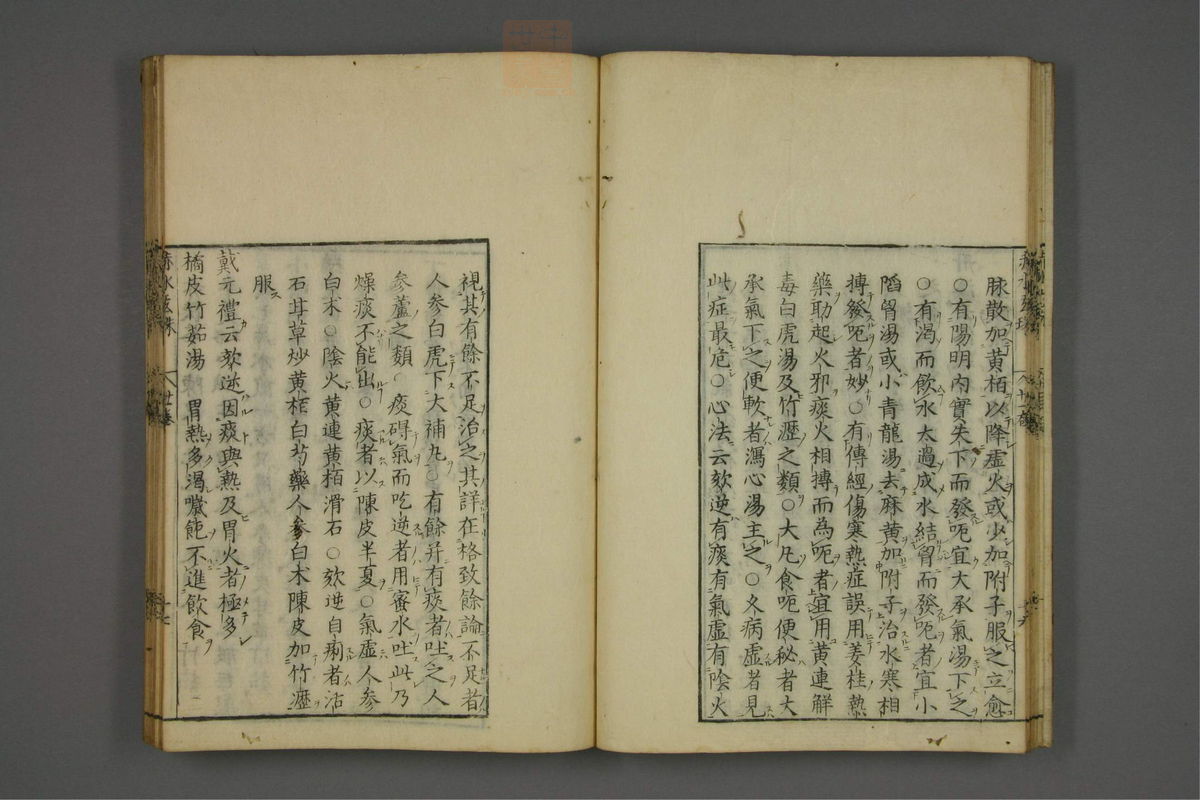 脉散加黄栢以降虚火或少加附子服之立愈
○有陽明内實失下而發呃宜大承氣湯下之
○有渴而飲水太過成水結胷而發呃者宜小
陷胷湯或小青龍湯去麻黄加附子治水寒相
搏發呃者妙○有傳經傷寒熱症誤用姜桂熱
藥助起火邪痰火相搏而為呃者宜用黄連解
毒白虎湯及竹瀝之類○大凡食呃便秘者大
承氣下之便軟者瀉心湯主之○久病虚者見
此症最危○心法云欬逆有痰有氣虚有陰火
視其有餘不足治之其詳在格致餘論不足者
人参白虎下大補丸○有餘并有痰者吐之人
参蘆之類○痰碍氣而吃逆者用蜜水吐此乃
燥痰不能出○痰者以陳皮半夏○氣虚人参
白术○陰火黄連黄栢滑石○欬逆自痢者活
石甘草炒黄栢白芍藥人参白术陳皮加竹瀝
服
戴元禮云欬逆因痰與熱及胃火者極多
橘皮竹茹湯 胃熱多渴嘔飽不進飲食